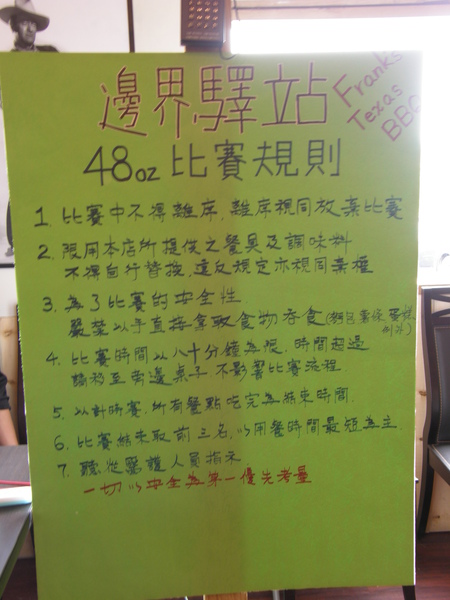 邊界驛站
Franks
Texas
BBQ
48oz 比賽規則
1. 比賽中不得離席, 離席視同放棄比賽
2. 限用本店所提供之餐具及調味料
不得自行替換, 違反規定亦視同棄權
3. 為了比賽的安全性
嚴禁以手直接拿取食物吞食
例外)
4. 比賽時間以八十分鐘為限, 時間超過
請移至旁邊桌子 不影響比賽流程.
5. 以計時賽, 所有餐點吃完為結束時間.
6. 比賽結束取前三名, 以用餐時間最短為主
7. 聽從醫護人員指示
一切以安全為第一優先考量